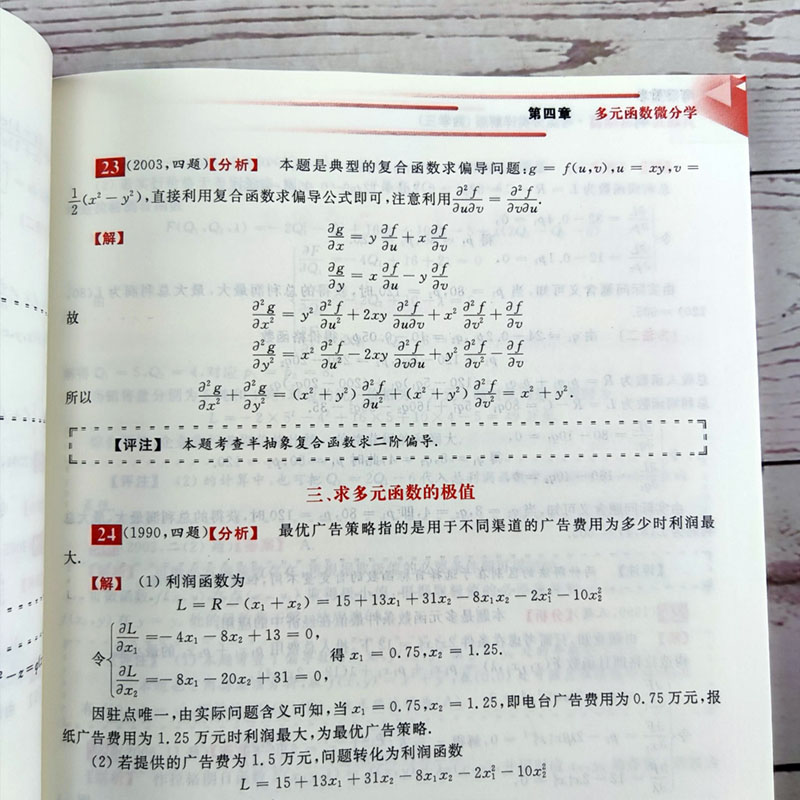 第四章 多元函数微分学
23 (2003,四题)【分析】 本题是典型的复合函数求偏导问题:g = f(u,v),u = xy,v =
1/2(x² − y²),直接利用复合函数求偏导公式即可,注意利用∂²f/∂u∂v = ∂²f/∂v∂u.
【解】 ∂g/∂x = y ∂f/∂u + x ∂f/∂v
∂g/∂y = x ∂f/∂u − y ∂f/∂v
故 ∂²g/∂x² = y² ∂²f/∂u² + 2xy ∂²f/∂u∂v + x² ∂²f/∂v² + ∂f/∂v
∂²g/∂y² = x² ∂²f/∂u² − 2xy ∂²f/∂v∂u + y² ∂²f/∂v² − ∂f/∂v
所以 ∂²g/∂x² + ∂²g/∂y² = (x² + y²) ∂²f/∂u² + (x² + y²) ∂²f/∂v² = x² + y².
【评注】 本题考查半抽象复合函数求二阶偏导.
三、求多元函数的极值
24 (1990,四题)【分析】 最优广告策略指的是用于不同渠道的广告费用为多少时利润最
大.
【解】 (1) 利润函数为
L = R − (x₁ + x₂) = 15 + 13x₁ + 31x₂ − 8x₁x₂ − 2x₁² − 10x₂²
令 { ∂L/∂x₁ = −4x₁ − 8x₂ + 13 = 0,
∂L/∂x₂ = −8x₁ − 20x₂ + 31 = 0, 得 x₁ = 0.75, x₂ = 1.25.
因驻点唯一,由实际问题含义可知,当 x₁ = 0.75, x₂ = 1.25,即电台广告费用为 0.75 万元,报
纸广告费用为 1.25 万元时利润最大,为最优广告策略.
(2) 若提供的广告费为 1.5 万元,问题转化为利润函数
L = 15 + 13x₁ + 31x₂ − 8x₁x₂ − 2x₁² − 10x₂²